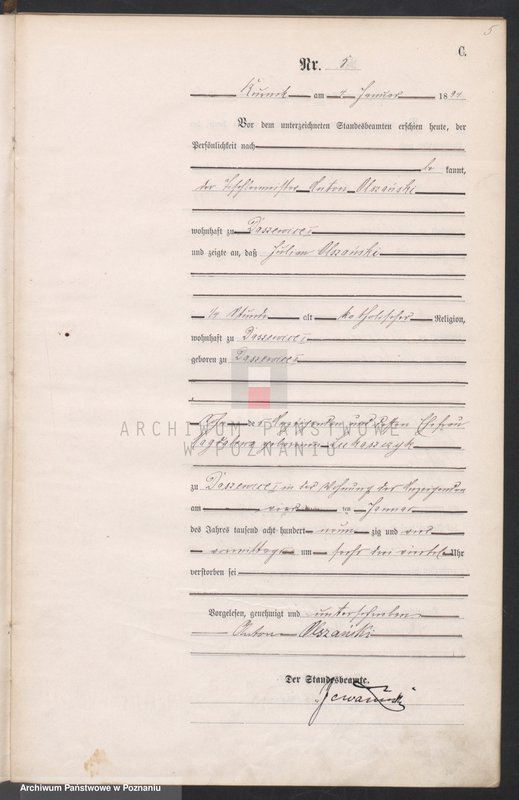 5
C.
Nr. 5
Kurnik am 4 Januar 1894
Vor dem unterzeichneten Standesbeamten erschien heute, der
Persönlichkeit nach
be kannt,
der Tischlermeister Anton Olszański
wohnhaft zu Daszewice
und zeigte an, daß Julian Olszański
1/4 Stunde alt katholischer Religion,
wohnhaft zu Daszewice
geboren zu Daszewice
Sohn des Anzeigenden und dessen Ehefrau
Magdalena geborenen Lukaszczyk
ARCHIWUM PAŃSTWOWE
W POZNANIU
zu Daszewice in der Wohnung des Anzeigenden
am vierten Januar
des Jahres tausend acht hundert neun zig und vier
vormittags um sechs drei viertel Uhr
verstorben sei
Vorgelesen, genehmigt und unterschrieben
Anton Olszański
Der Standesbeamte.
Archiwum Państwowe w Poznaniu